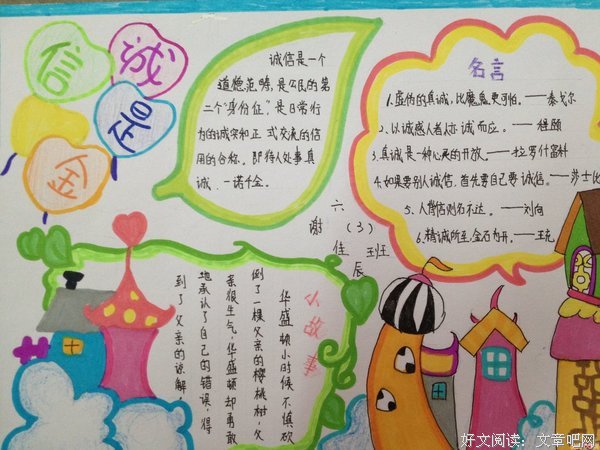 诚
信
是
金
诚信是一个
道德范畴,是公民的第
二个"身份证",是日常行
为的诚实和正式交流的信
用的合称。即待人处事真
诚、一诺千金。
名言
1.虚伪的真诚,比魔鬼更可怕。——泰戈尔
2.以诚感人者,人亦诚而应。——程颐
3.真诚是一种心灵的开放。——拉罗什富科
4.如果要别人诚信,首先要自己要诚信。——莎士比
5.人背信则名不达。——刘向
6.精诚所至,金石为开。——王充
六(3)班
谢佳辰
小故事
华盛顿小时候不慎砍
倒了一棵父亲的樱桃树,父
亲很生气,华盛顿却勇敢
地承认了自己的错误,得
到了父亲的谅解。
好文阅读:文章吧网